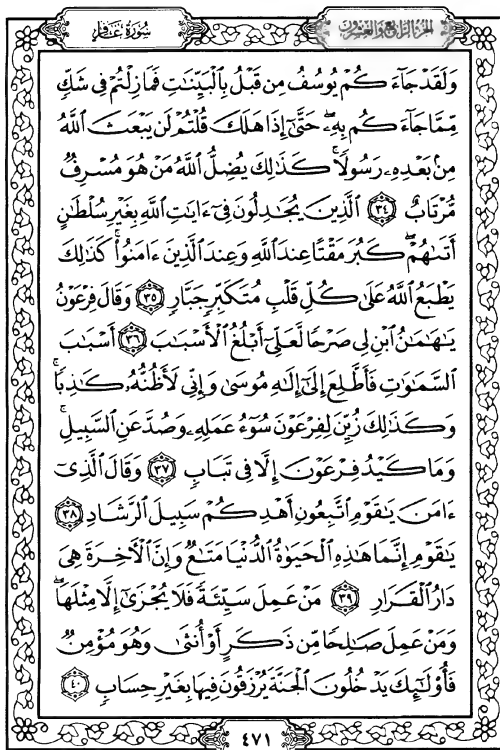 سُورَةُ غَافِرٍ
الجُزءُ الرَّابِعُ وَالعِشْرُونَ
وَلَقَدْ جَآءَكُمْ يُوسُفُ مِن قَبْلُ بِالْبَيِّنَٰتِ فَمَا زِلْتُمْ فِى شَكٍّ
مِّمَّا جَآءَكُم بِهِۦ ۖ حَتَّىٰٓ إِذَا هَلَكَ قُلْتُمْ لَن يَبْعَثَ ٱللَّهُ
مِنۢ بَعْدِهِۦ رَسُولًا ۚ كَذَٰلِكَ يُضِلُّ ٱللَّهُ مَنْ هُوَ مُسْرِفٌ
مُّرْتَابٌ ٣٤ ٱلَّذِينَ يُجَٰدِلُونَ فِىٓ ءَايَٰتِ ٱللَّهِ بِغَيْرِ سُلْطَٰنٍ
أَتَىٰهُمْ ۖ كَبُرَ مَقْتًا عِندَ ٱللَّهِ وَعِندَ ٱلَّذِينَ ءَامَنُوا۟ ۚ كَذَٰلِكَ
يَطْبَعُ ٱللَّهُ عَلَىٰ كُلِّ قَلْبِ مُتَكَبِّرٍ جَبَّارٍ ٣٥ وَقَالَ فِرْعَوْنُ
يَٰهَٰمَٰنُ ٱبْنِ لِى صَرْحًا لَّعَلِّىٓ أَبْلُغُ ٱلْأَسْبَٰبَ ٣٦ أَسْبَٰبَ
ٱلسَّمَٰوَٰتِ فَأَطَّلِعَ إِلَىٰٓ إِلَٰهِ مُوسَىٰ وَإِنِّى لَأَظُنُّهُۥ كَٰذِبًا ۚ
وَكَذَٰلِكَ زُيِّنَ لِفِرْعَوْنَ سُوٓءُ عَمَلِهِۦ وَصُدَّ عَنِ ٱلسَّبِيلِ ۚ
وَمَا كَيْدُ فِرْعَوْنَ إِلَّا فِى تَبَابٍ ٣٧ وَقَالَ ٱلَّذِىٓ
ءَامَنَ يَٰقَوْمِ ٱتَّبِعُونِ أَهْدِكُمْ سَبِيلَ ٱلرَّشَادِ ٣٨
يَٰقَوْمِ إِنَّمَا هَٰذِهِ ٱلْحَيَوٰةُ ٱلدُّنْيَا مَتَٰعٌ وَإِنَّ ٱلْءَاخِرَةَ هِىَ
دَارُ ٱلْقَرَارِ ٣٩ مَنْ عَمِلَ سَيِّئَةً فَلَا يُجْزَىٰٓ إِلَّا مِثْلَهَا ۖ
وَمَنْ عَمِلَ صَٰلِحًا مِّن ذَكَرٍ أَوْ أُنثَىٰ وَهُوَ مُؤْمِنٌ
فَأُو۟لَٰٓئِكَ يَدْخُلُونَ ٱلْجَنَّةَ يُرْزَقُونَ فِيهَا بِغَيْرِ حِسَابٍ ٤٠
٤٧١